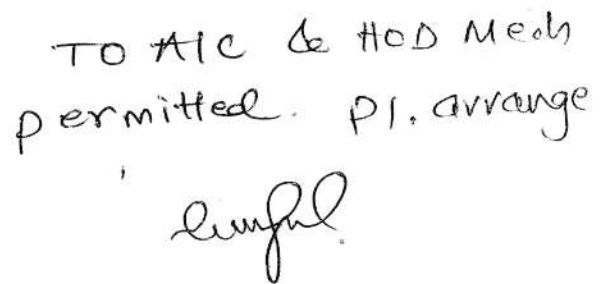 TO A/C & HOD Mech
permitted. Pl. arrange